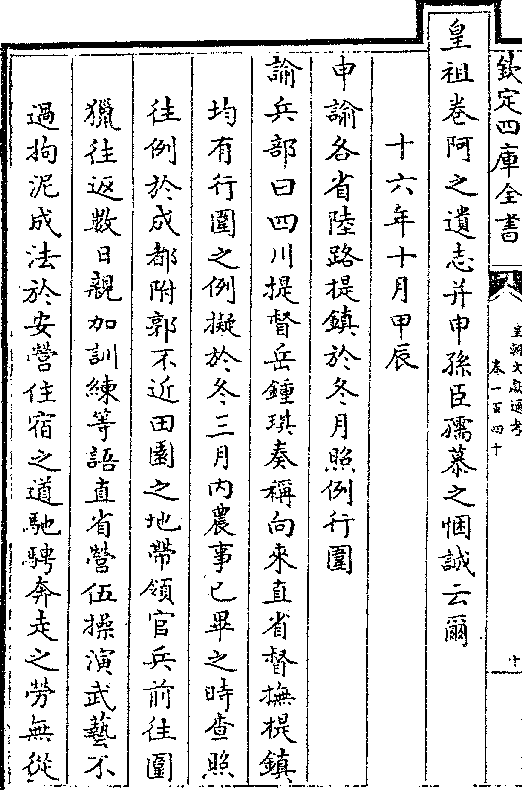 欽定四庫全書
皇朝文獻通考
卷一百四十
十
皇祖卷阿之遺志并申孫臣孺慕之悃誠云爾
十六年十月甲辰
申諭各省陸路提鎮於冬月照例行圍
諭兵部曰四川提督岳鍾琪奏稱向來直省督撫提鎮
均有行圍之例擬於冬三月內農事已畢之時查照
往例於成都附郭不近田園之地帶領官兵前往圍
獵往返數日親加訓練等語直省營伍操演武藝不
過拘泥成法於安營住宿之道馳騁奔走之勞無從